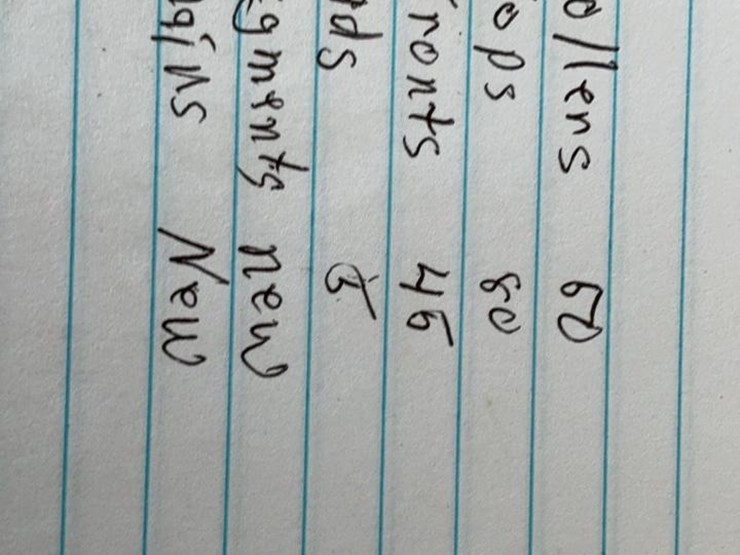 ollens 60
ops 80
ronts 45
ds 5
gments new
gins New